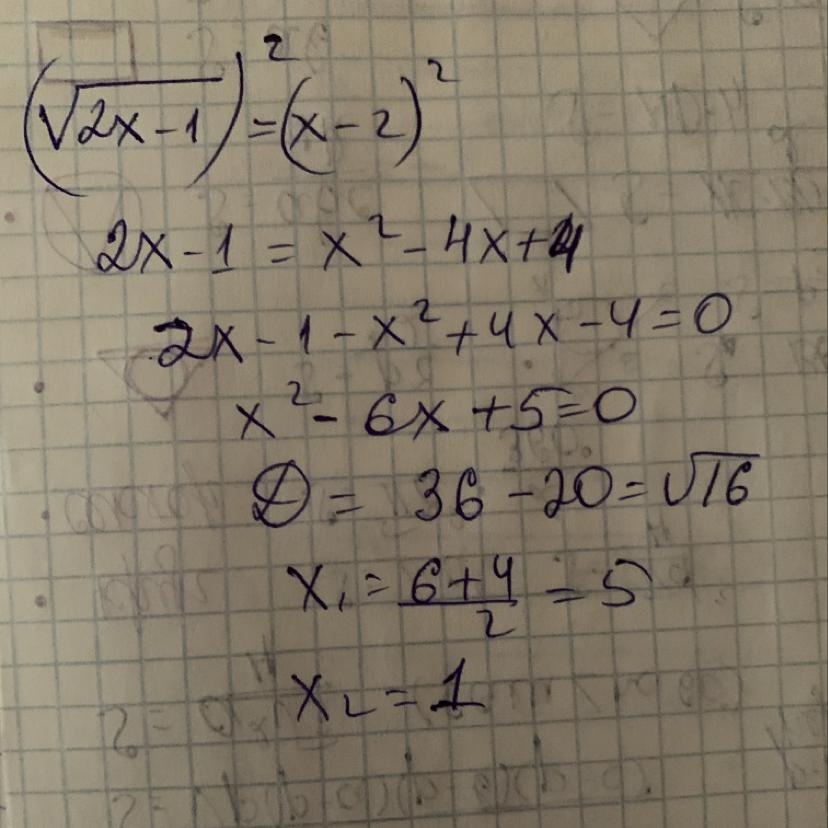 (√(2x-1))² = (x-2)²
2x-1 = x²-4x+4
2x-1-x²+4x-4=0
x²-6x+5=0
D = 36-20=√16
x₁ = (6+4)/2 = 5
x₂ = 1